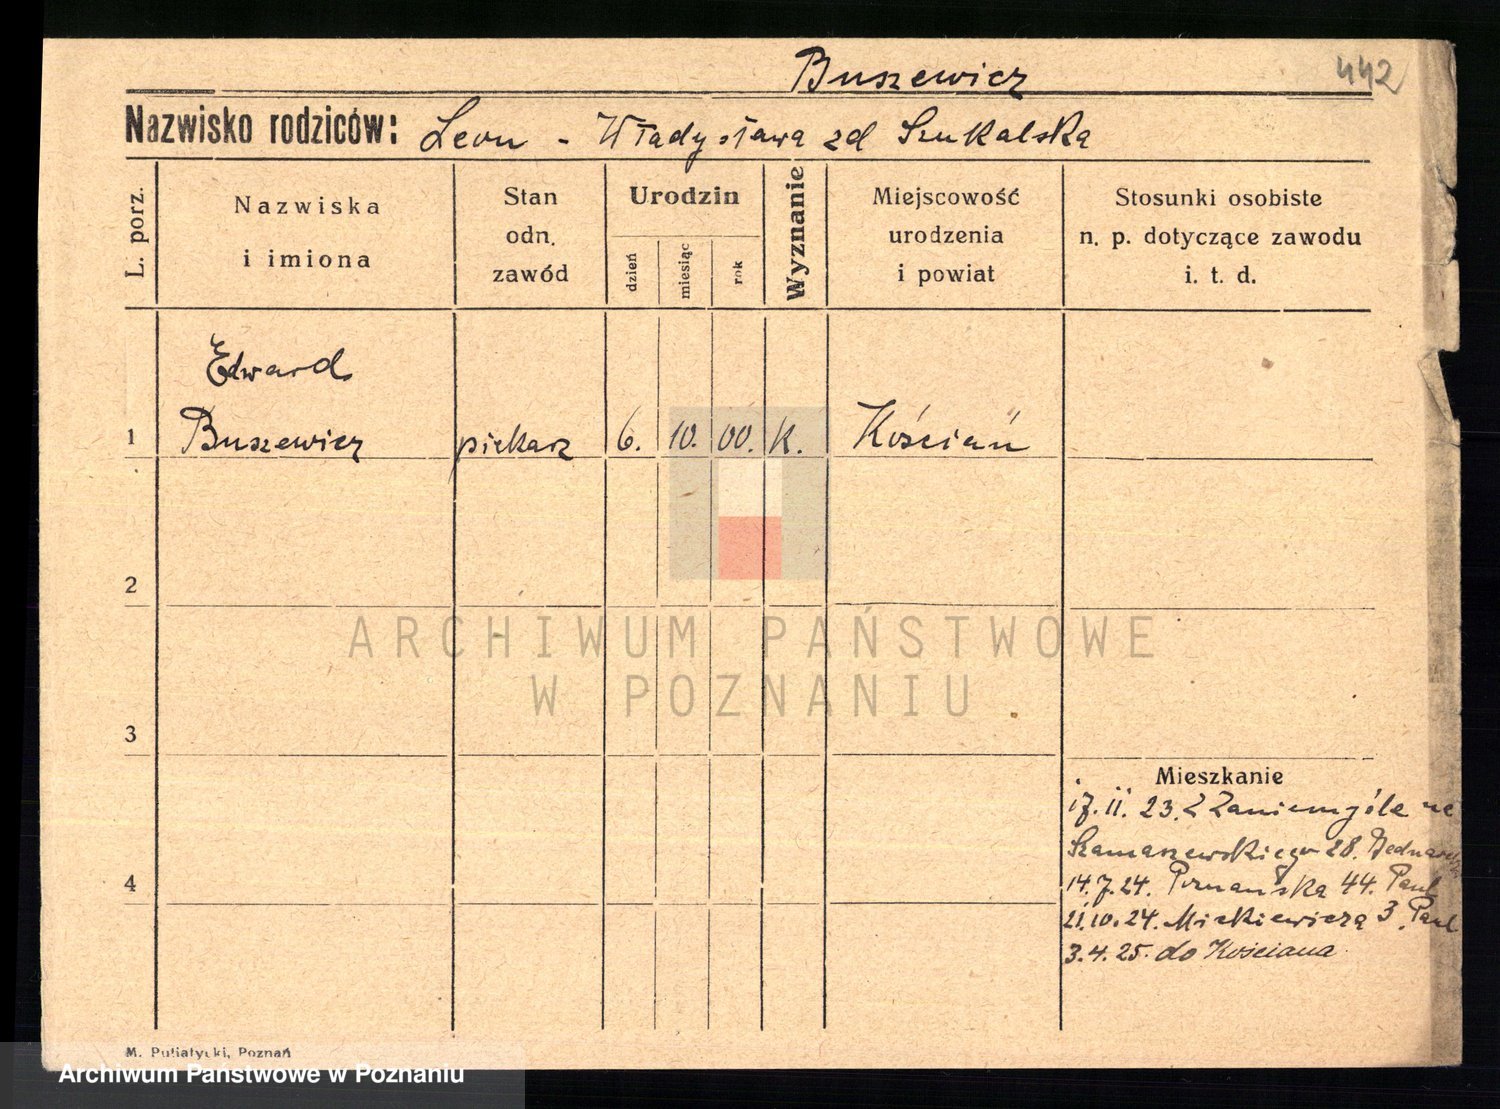 Buszewicz
442
Nazwisko rodziców: Leon - Władysława zd Szukalska
L. porz.
Nazwiska
i imiona
Stan
odn.
zawód
Urodzin
dzień
miesiąc
rok
Wyznanie
Miejscowość
urodzenia
i powiat
Stosunki osobiste
n. p. dotyczące zawodu
i. t. d.
Edward
1 Buszewicz piekarz 6. 10. 00. K. Kościań
2
ARCHIWUM PAŃSTWOWE
W POZNANIU
3
Mieszkanie
17. 11. 23. Z Zaniemyśla na
Szamaszewskiego 28.
4
14.7.24. Poznańska 44. Paul
21.10.24. Mickiewicza 3. Paul
3.4.25. do Kościana
M. Putiatycki, Poznań
Archiwum Państwowe w Poznaniu